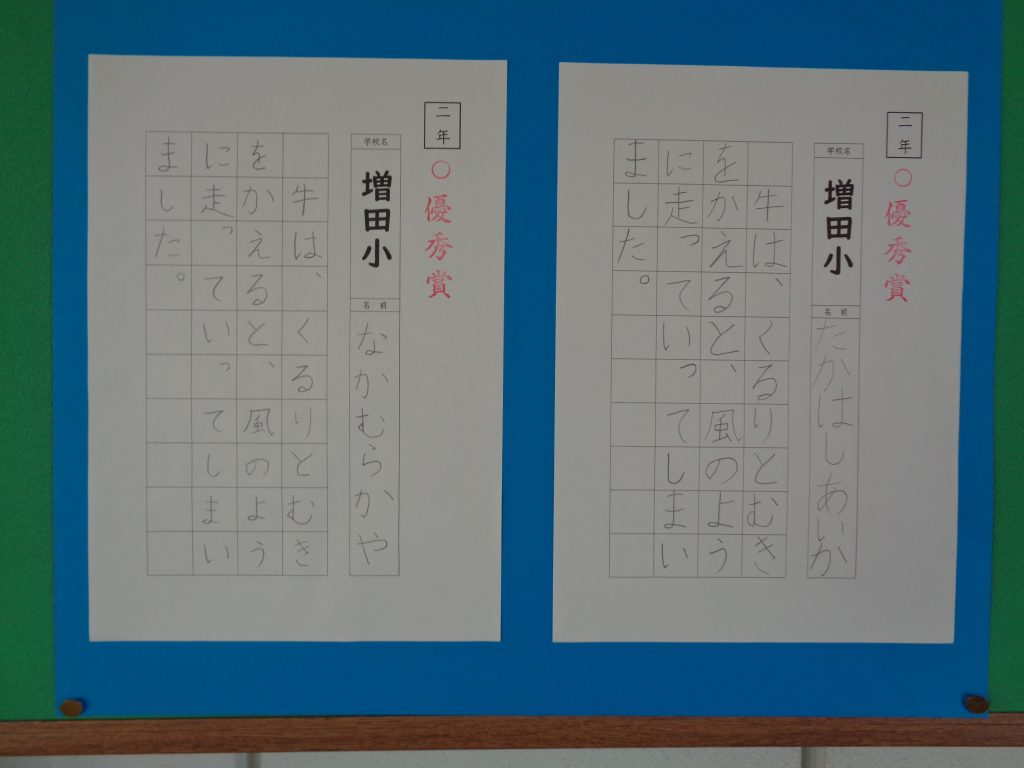 二年
○優秀賞
学校名
増田小
名前
たかはしあいか
牛は、くるりとむき
をかえると、風のよう
に走っていってしまい
ました。
二年
○優秀賞
学校名
増田小
名前
なかむらかや
牛は、くるりとむき
をかえると、風のよう
に走っていってしまい
ました。